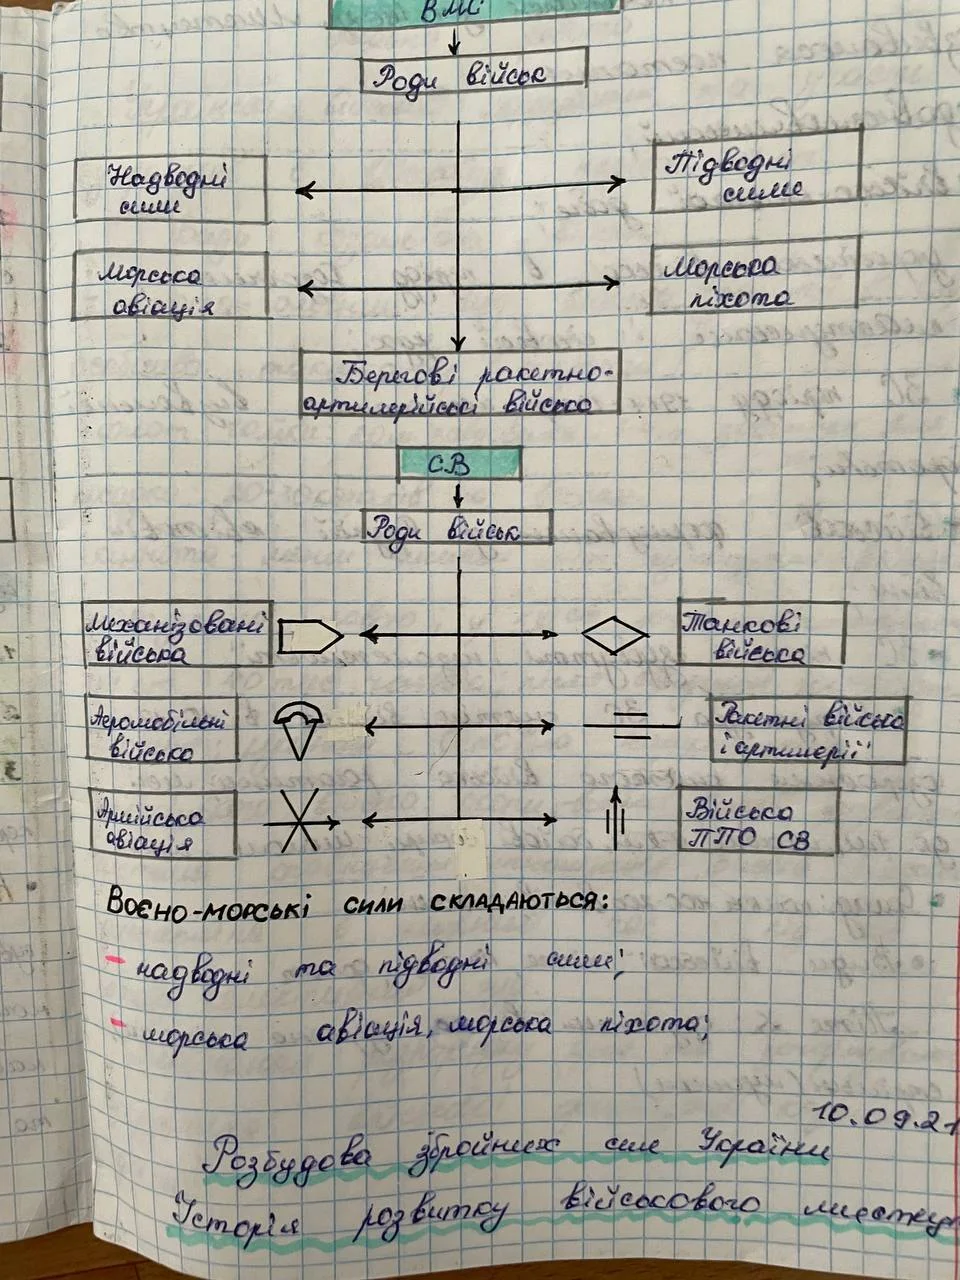 ВМС
Роди військ
Надводні
сили
Підводні
сили
Морська
авіація
Морська
піхота
Берегові ракетно-
артилерійські війська
СВ
Роди військ
Механізовані
війська
Танкові
війська
Аеромобільні
війська
Ракетні війська
і артилерії
Армійська
авіація
Війська
ППО СВ
Воєно-морські сили складаються:
- надводні та підводні сили;
- морська авіація, морська піхота;
10.09.21
Розбудова збройних сил України
Історія розвитку військового